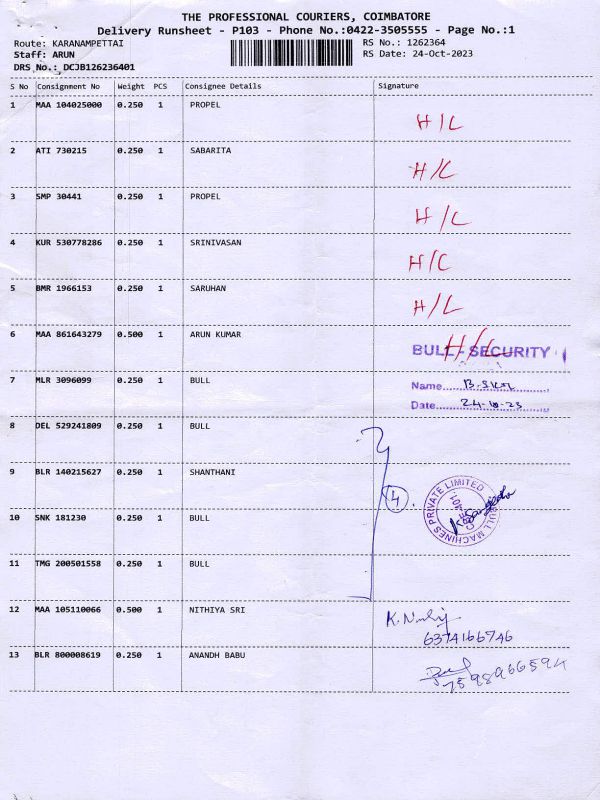 THE PROFESSIONAL COURIERS, COIMBATORE
Delivery Runsheet - P103 - Phone No.:0422-3505555 - Page No.:1
Route: KARANAMPETTAI RS No.: 1262364
Staff: ARUN RS Date: 24-Oct-2023
DRS No.: DCJB126236401
S No Consignment No Weight PCS Consignee Details Signature
1 MAA 104025000 0.250 1 PROPEL H/C
2 ATI 730215 0.250 1 SABARITA H/C
3 SMP 30441 0.250 1 PROPEL H/C
4 KUR 530778286 0.250 1 SRINIVASAN H/C
5 BMR 1966153 0.250 1 SARUHAN H/C
6 MAA 861643279 0.500 1 ARUN KUMAR H/C
BULL - SECURITY
7 MLR 3096099 0.250 1 BULL Name
Date 24-10-23
8 DEL 529241809 0.250 1 BULL
9 BLR 140215627 0.250 1 SHANTHANI
4
BULL MACHINES PRIVATE LIMITED
10 SNK 181230 0.250 1 BULL
11 TMG 200501558 0.250 1 BULL
12 MAA 105110066 0.500 1 NITHIYA SRI
6374166746
13 BLR 800008619 0.250 1 ANANDH BABU
7598966594